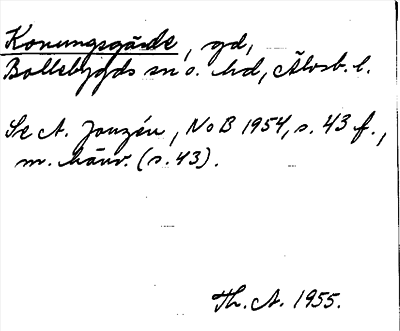 Konungsgärde, gd,
Bollebygds sn o. hd, Älvsb. l.
Se A. Janzén, NoB 1954, s. 43 f.,
m. hänv. (s. 43).
Th. A. 1955.